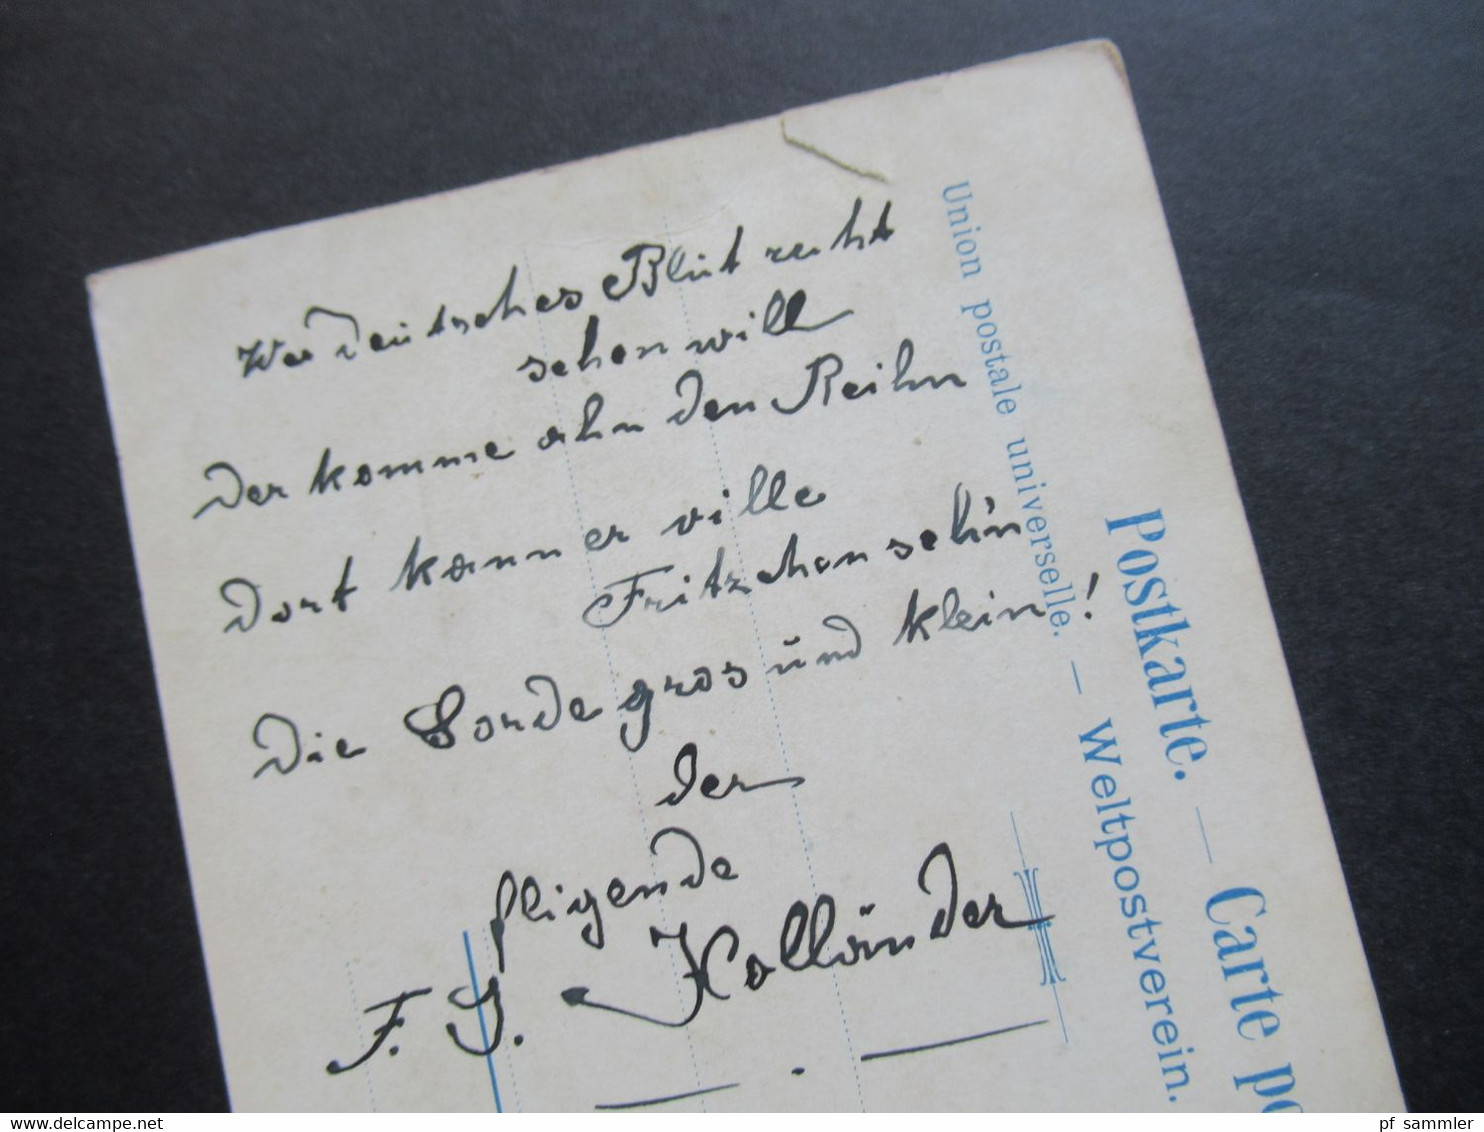 Wer deutsches Blut recht
sehen will
der komme ohn den Reihn
Dort kann er ville
Fritzchen seh'n
Die Sorde gros und klein!
der
fligende
Holländer
F. J.
Union postale universelle. — Weltpostverein.
Postkarte. — Carte po
© delcampe.net
pf_sammler